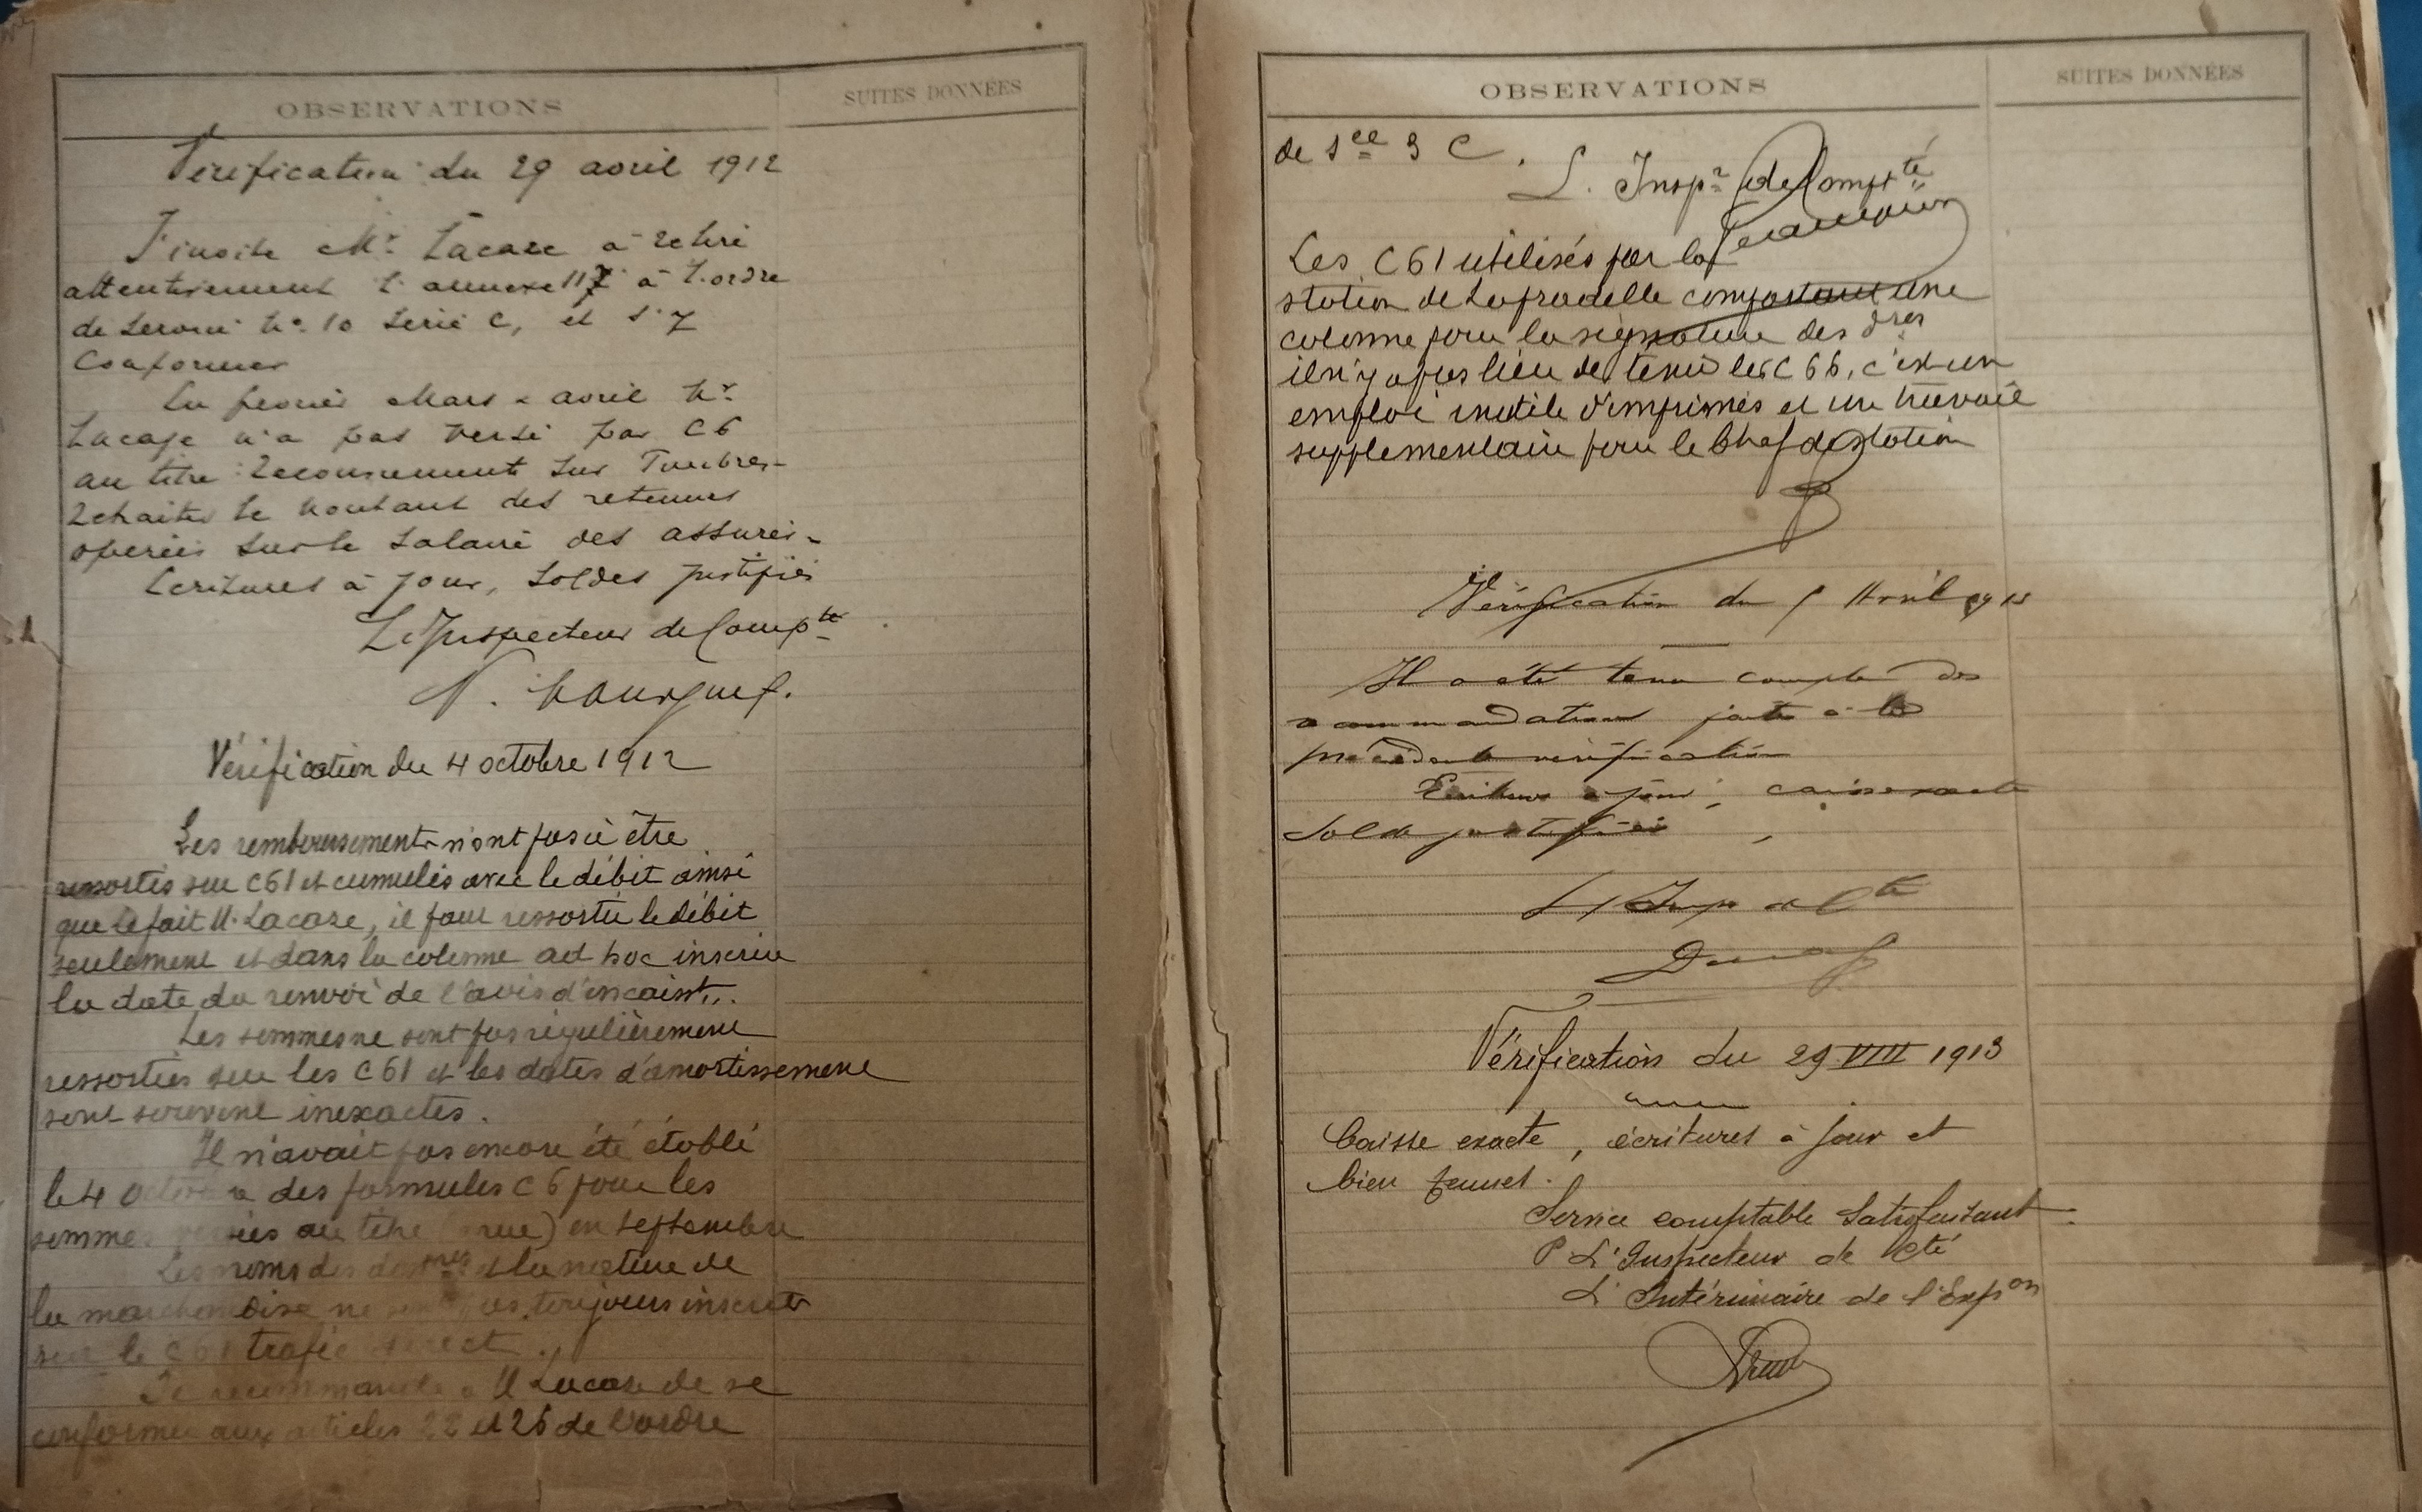 OBSERVATIONS
SUITES DONNÉES
Vérification du 29 avril 1912
J'invite Mr. Lacaze à relire
attentivement l'annexe 117 à l'ordre
de service No. 10 Serie C, et s'y
conformer
En fevrier Mars - avril Mr.
Lacaze n'a pas versé par C6
au titre: Recouvrement sur Timbres-
retraites le montant des retenues
opérées sur le salaire des assurés-
Ecritures à jour, soldes justifiés
L'Inspecteur de Compté
Vérification du 4 octobre 1912
Les remboursements n'ont pas à être
ressortis sur C61 et cumulés avec le débit ainsi
que le fait M. Lacaze, il faut ressortir le débit
seulement et dans la colonne ad hoc inscrire
la date du renvoi de l'avis d'encaisst.
Les sommes ne sont pas régulièrement
ressorties sur les C61 et les dates d'amortissement
sont souvent inexactes.
Il n'avait pas encore été établi
le 4 octobre des formules C6 pour les
sommes au titre en septembre
Les noms des et la nature de
la marchandise ne sont pas toujours inscrits
sur le C61 trafic direct.
Je recommande à M Lacaze de se
conformer aux articles 22 et 26 de l'ordre
OBSERVATIONS
SUITES DONNÉES
de sce 3 C.
L. Inspr de Compté
Les C61 utilisés par la
station de Lapradelle comportant une
colonne pour la signature des dres
il n'y a pas lieu de tenir les C66, c'est un
emploi inutile d'imprimés et un travail
supplementaire pour le Chef de station
Vérification du Avril 1913
Il a été tenu compte des
recommandations faites à la
précédente vérification
Ecritures à jour, caisse exacte
Solde justifiés
L'Insp de Cté
Vérification du 29 VIII 1913
Caisse exacte, écritures à jour et
bien tenues.
Service comptable Satisfaisant.
P L'Inspecteur de Cté
L'Intérimaire de l'Expon